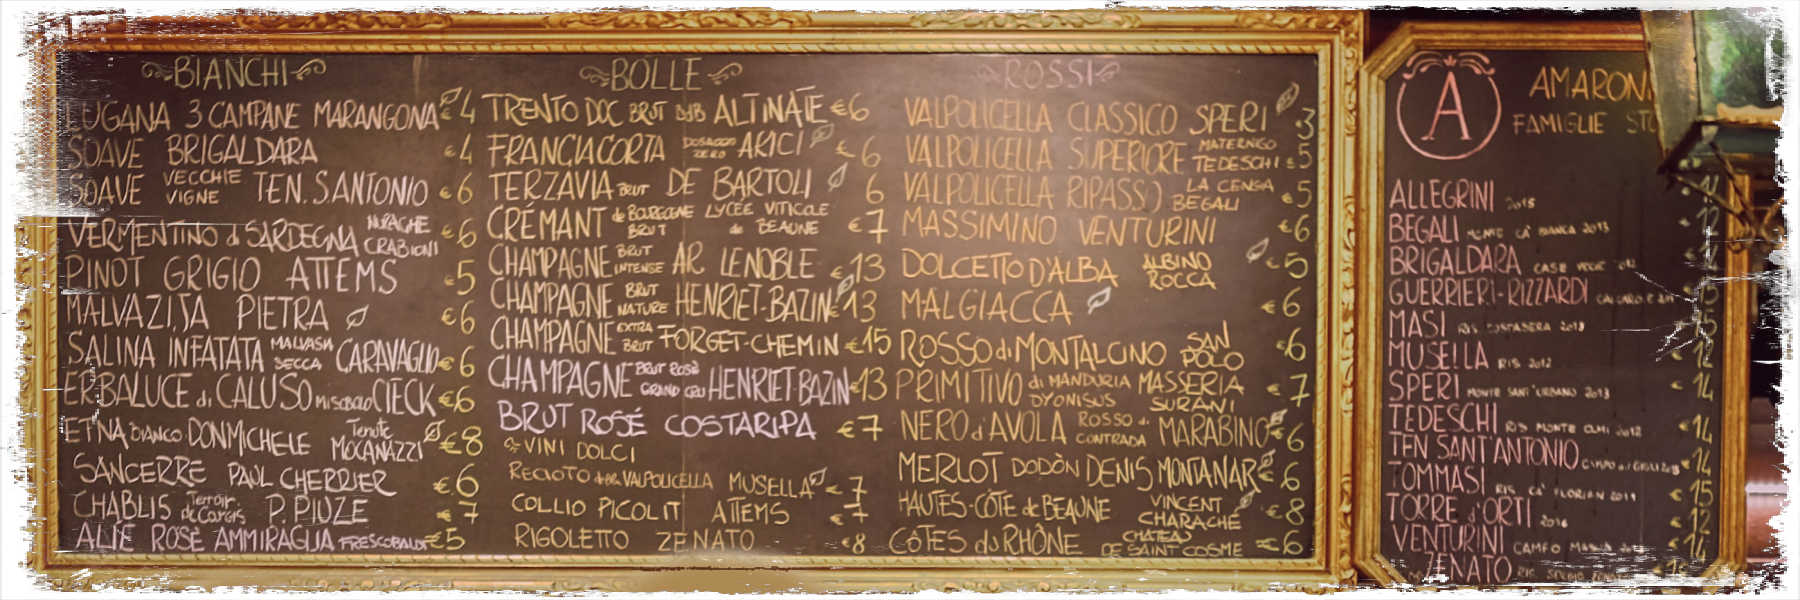 BIANCHI
LUGANA 3 CAMPANE MARANGONA € 4
SOAVE BRIGALDARA € 4
SOAVE VECCHIE VIGNE TEN. S. ANTONIO € 6
VERMENTINO di SARDEGNA NURAGHE CRABIONI € 6
PINOT GRIGIO ATTEMS € 5
MALVAZIJA PIETRA € 6
SALINA INFATATA MALVASIA SECCA CARAVAGLIO € 6
ERBALUCE di CALUSO MISOBOLO CIECK € 6
ETNA BIANCO DON MICHELE Tenute MOGANAZZI € 8
SANCERRE PAUL CHERRIER € 6
CHABLIS Terroir de Courgis P. PIUZE € 7
ALIE ROSÈ AMMIRAGLIA FRESCOBALDI € 5
BOLLE
TRENTO DOC BRUT BdB ALTINATE € 6
FRANCIACORTA DOSAGGIO ZERO ARICI € 6
TERZAVIA BRUT DE BARTOLI 6
CRÉMANT de BOURGOGNE BRUT LYCÉE VITICOLE de BEAUNE € 7
CHAMPAGNE BRUT INTENSE AR LENOBLE € 13
CHAMPAGNE BRUT NATURE HENRIET-BAZIN € 13
CHAMPAGNE EXTRA BRUT FORGET-CHEMIN € 15
CHAMPAGNE BRUT ROSÉ GRAND CRU HENRIET-BAZIN € 13
BRUT ROSÉ COSTARIPA € 7
VINI DOLCI
RECIOTO della VALPOLICELLA MUSELLA € 7
COLLIO PICOLIT ATTEMS € 7
RIGOLETTO ZENATO € 8
ROSSI
VALPOLICELLA CLASSICO SPERI 3
VALPOLICELLA SUPERIORE MATERNIGO TEDESCHI € 5
VALPOLICELLA RIPASSO LA CENGA BEGALI € 5
MASSIMINO VENTURINI € 6
DOLCETTO D'ALBA ALBINO ROCCA € 5
MALGIACCA € 6
ROSSO di MONTALCINO SAN POLO € 6
PRIMITIVO di MANDURIA DYONISUS MASSERIA SURANI € 7
NERO d'AVOLA ROSSO di CONTRADA MARABINO € 6
MERLOT DODÒN DENIS MONTANAR € 6
HAUTES-CÔTE de BEAUNE VINCENT CHARACHE € 8
CÔTES du RHÔNE CHATEAU DE SAINT COSME € 6
A
AMARON
FAMIGLIE
ALLEGRINI 2015
BEGALI MONTE CA' BIANCA 2013
BRIGALDARA CASE VECIE
GUERRIERI-RIZZARDI
MASI RIS COSTASERA 2013
MUSELLA RIS 2012 12
SPERI MONTE SANT'URBANO 2013 € 14
TEDESCHI RIS MONTE OLMI 2012 € 14
TEN SANT'ANTONIO CAMPO dei GIGLI € 14
TOMMASI RIS CA' FLORIAN 2011 € 15
TORRE d'ORTI 2016 € 12
VENTURINI CAMPO MASUA € 14
ZENATO